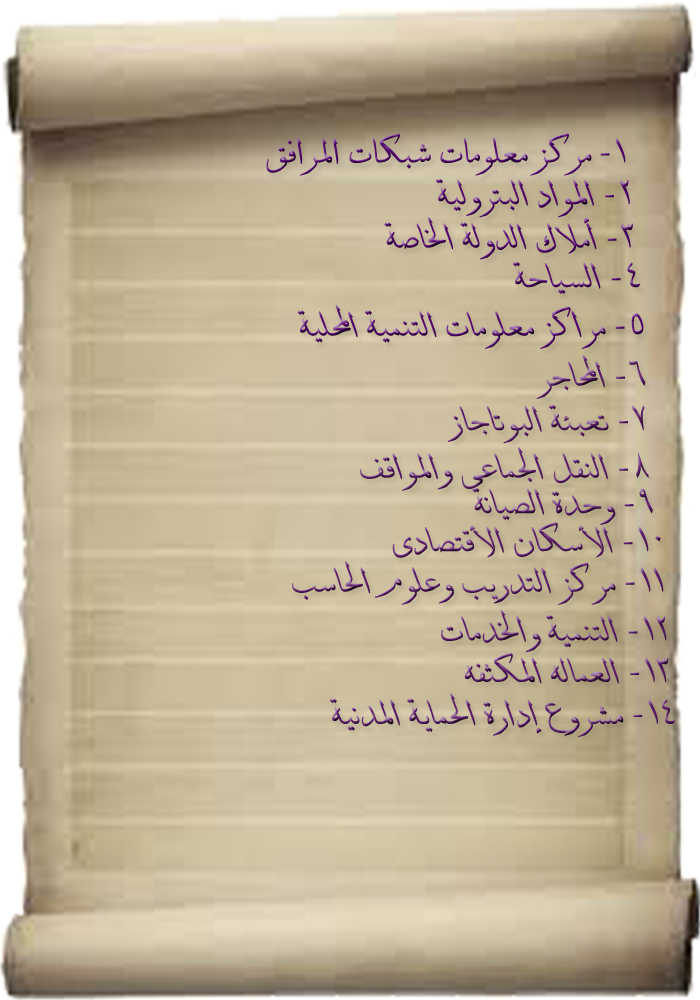 ١- مركز معلومات شبكات المرافق
٢- المواد البترولية
٣- أملاك الدولة الخاصة
٤- السياحة
٥- مراكز معلومات التنمية المحلية
٦- المحاجر
٧- تعبئة البوتاجاز
٨- النقل الجماعي والمواقف
٩- وحدة الصيانه
١٠- الأسكان الأقتصادى
١١- مركز التدريب وعلوم الحاسب
١٢- التنمية والخدمات
١٣- العماله المكثفه
١٤- مشروع إدارة الحماية المدنية